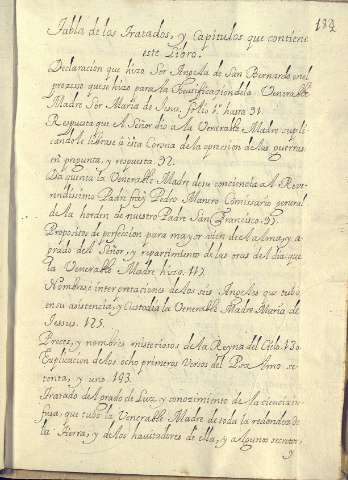 184
Tabla de los Tratados, y Capitulos que contiene
este Libro.
Declaracion que hizo Sor Angella de San Bernardo en el
prozesso que se hizo para la Beatificazion de la Venerable
Madre Sor Maria de Jesus. folio 1º hasta 31.
Respuesta que el Señor dio a la Venerable Madre supli
candole librase à esta Corona de la opresion de las guerras
en pregunta, y respuesta. 32.
Da quenta la Venerable Madre de su conciencia al Reve-
rendissimo Padre fray Pedro Manero Comissario general
de la horden de nuestro Padre San Francisco. 37.
Propositos de perfeccion para mayor bien del Alma, y a
grado del Señor, y repartimiento de las oras del dia que
la Venerable Madre hizo. 117.
Nombres e interpretaciones de los seis Angeles que tubo
en su asistencia, y Custodia la Venerable Madre Maria de
Jessus. 125.
Prezes, y nombres misteriosos de la Reyna del Cielo. 130.
Explicacion de los ocho primeros Versos del Psalmo se-
tenta, y uno. 143.
Tratado del grado de Luz, y conozimiento de la ciencia in
fusa, que tubo la Venerable Madre de toda la redondez de
la tierra, y de los havitadores de ella, y algunos secretos,